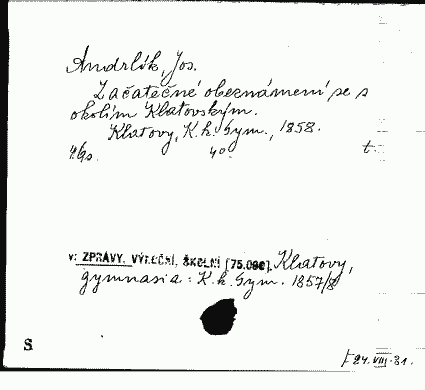 Andrlík, Jos.
Začatečné obeznámení se s
okolím Klatovským.
Klatovy, K. k. Gym., 1858.
4°. t.
v: ZPRÁVY, VÝROČNÍ, ŠKOLNÍ [75.090]. Klatovy,
gymnasia: K. k. Gym. 1857/8
S
24. VIII. 31.